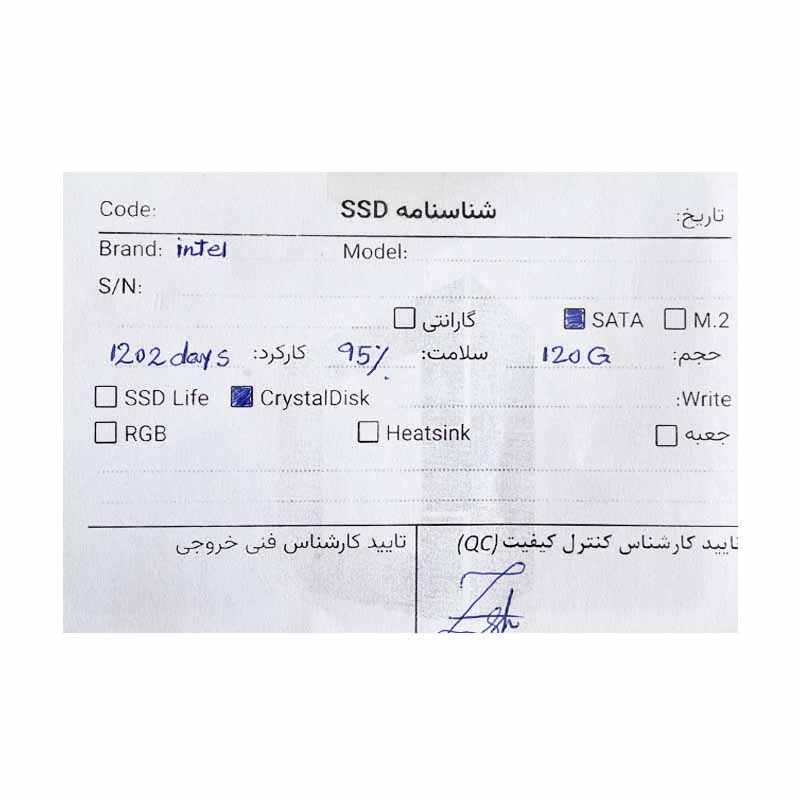 Code: شناسنامه SSD تاریخ:
Brand: intel Model:
S/N:
گارانتی SATA M.2
حجم: 120 G سلامت: 95% کارکرد: 1202 days
SSD Life CrystalDisk Write:
RGB Heatsink جعبه
تایید کارشناس کنترل کیفیت (QC) تایید کارشناس فنی خروجی